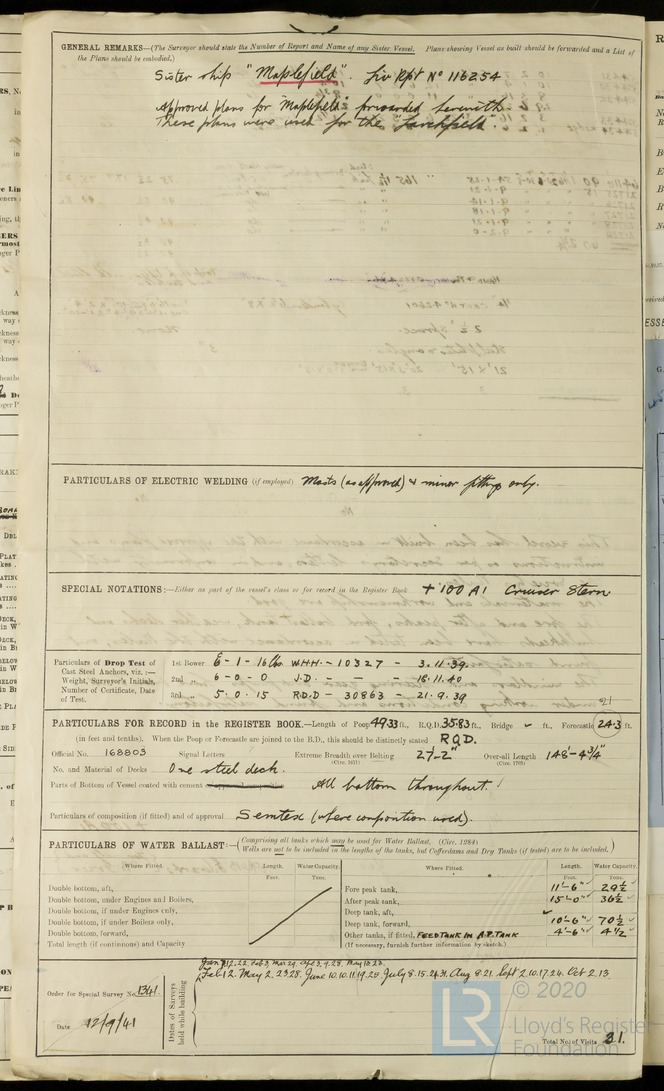 GENERAL REMARKS—(The Surveyor should state the Number of Report and Name of any Sister Vessel. Plans showing Vessel as built should be forwarded and a List of
the Plans should be embodied.)
Sister ship "Maplefield". Liv Rpt No 116254
Approved plans for "Maplefield" forwarded herewith.
These plans were used for the "Larchfield".
PARTICULARS OF ELECTRIC WELDING (if employed) Masts (as approved) & minor fittings only.
SPECIAL NOTATIONS:—Either as part of the vessel's class or for record in the Register Book + 100 A1 Cruiser Stern
Particulars of Drop Test of Cast Steel Anchors, viz.:— Weight, Surveyor's Initials, Number of Certificate, Date of Test.
1st Bower 6 - 1 - 16 lbs. W.H.H. - 10327 - 3.11.39.
2nd „ 6 - 0 - 0 J.D. - — - 18.11.40
3rd „ 5 . 0 . 15 R.D.D - 30863 - 21.9.39
PARTICULARS FOR RECORD in the REGISTER BOOK.—Length of Poop 49.33 ft., R.Q.D. 35.83 ft., Bridge ft., Forecastle 24.3 ft.
(in feet and tenths). When the Poop or Forecastle are joined to the B.D., this should be distinctly stated R.Q.D.
Official No. 168803 Signal Letters Extreme Breadth over Belting 27'-2" Over-all Length 148'-4¾"
(Circ. 1611) (Circ. 1703)
No. and Material of Decks One steel deck.
Parts of Bottom of Vessel coated with cement All bottom throughout.
Particulars of composition (if fitted) and of approval Semtex (where composition used).
PARTICULARS OF WATER BALLAST:—(Comprising all tanks which may be used for Water Ballast. (Circ. 1284)
Wells are not to be included in the lengths of the tanks, but Cofferdams and Dry Tanks (if tested) are to be included.)
Where Fitted. Length. Water Capacity. Where Fitted. Length. Water Capacity.
Feet. Tons. Feet. Tons.
Double bottom, aft, Fore peak tank, 11'-6" 29½
Double bottom, under Engines and Boilers, After peak tank, 15'-0" 36½
Double bottom, if under Engines only, Deep tank, aft,
Double bottom, if under Boilers only, Deep tank, forward, 10'-6" 70½
Double bottom, forward, Other tanks, if fitted, FEED TANK IN A.P. TANK 4'-6" 4½
Total length (if continuous) and Capacity (If necessary, furnish further information by sketch.)
Order for Special Survey No. 1341
Date 12/9/41
Dates of Surveys held while building
Feb 12. May 2.23.28. June 10.10.11.19.25 July 8.15.24.31. Aug 8.21. Sept 2.10.17.26. Oct 2.13.
Total No. of Visits 31.
© 2020
LR
Lloyd's Register
Foundation